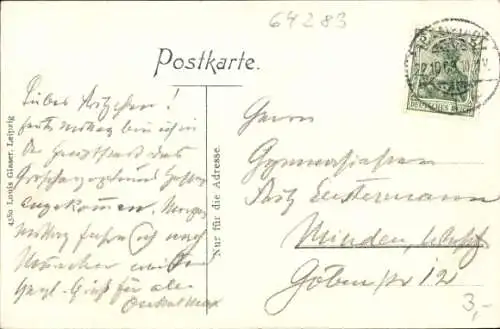 64283
Postkarte.
DEUTSCHES REICH
Liebes Fritzchen!
heute Mittag bin ich in
der Hauptstadt des
Großherzogtums
angekommen. Morgen
Mittag fahre ich nach
München weiter
Herzl. Gruß für alle
Onkel Max
4580 Louis Glaser, Leipzig
Nur für die Adresse.
Herrn
Gymnasiasten
Fritz
Minden,
Göbenstr 12
3,-